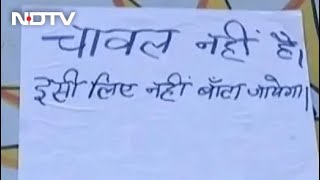 NDTV
चावल नहीं है।
इसी लिए नहीं बाँटा जायेगा।